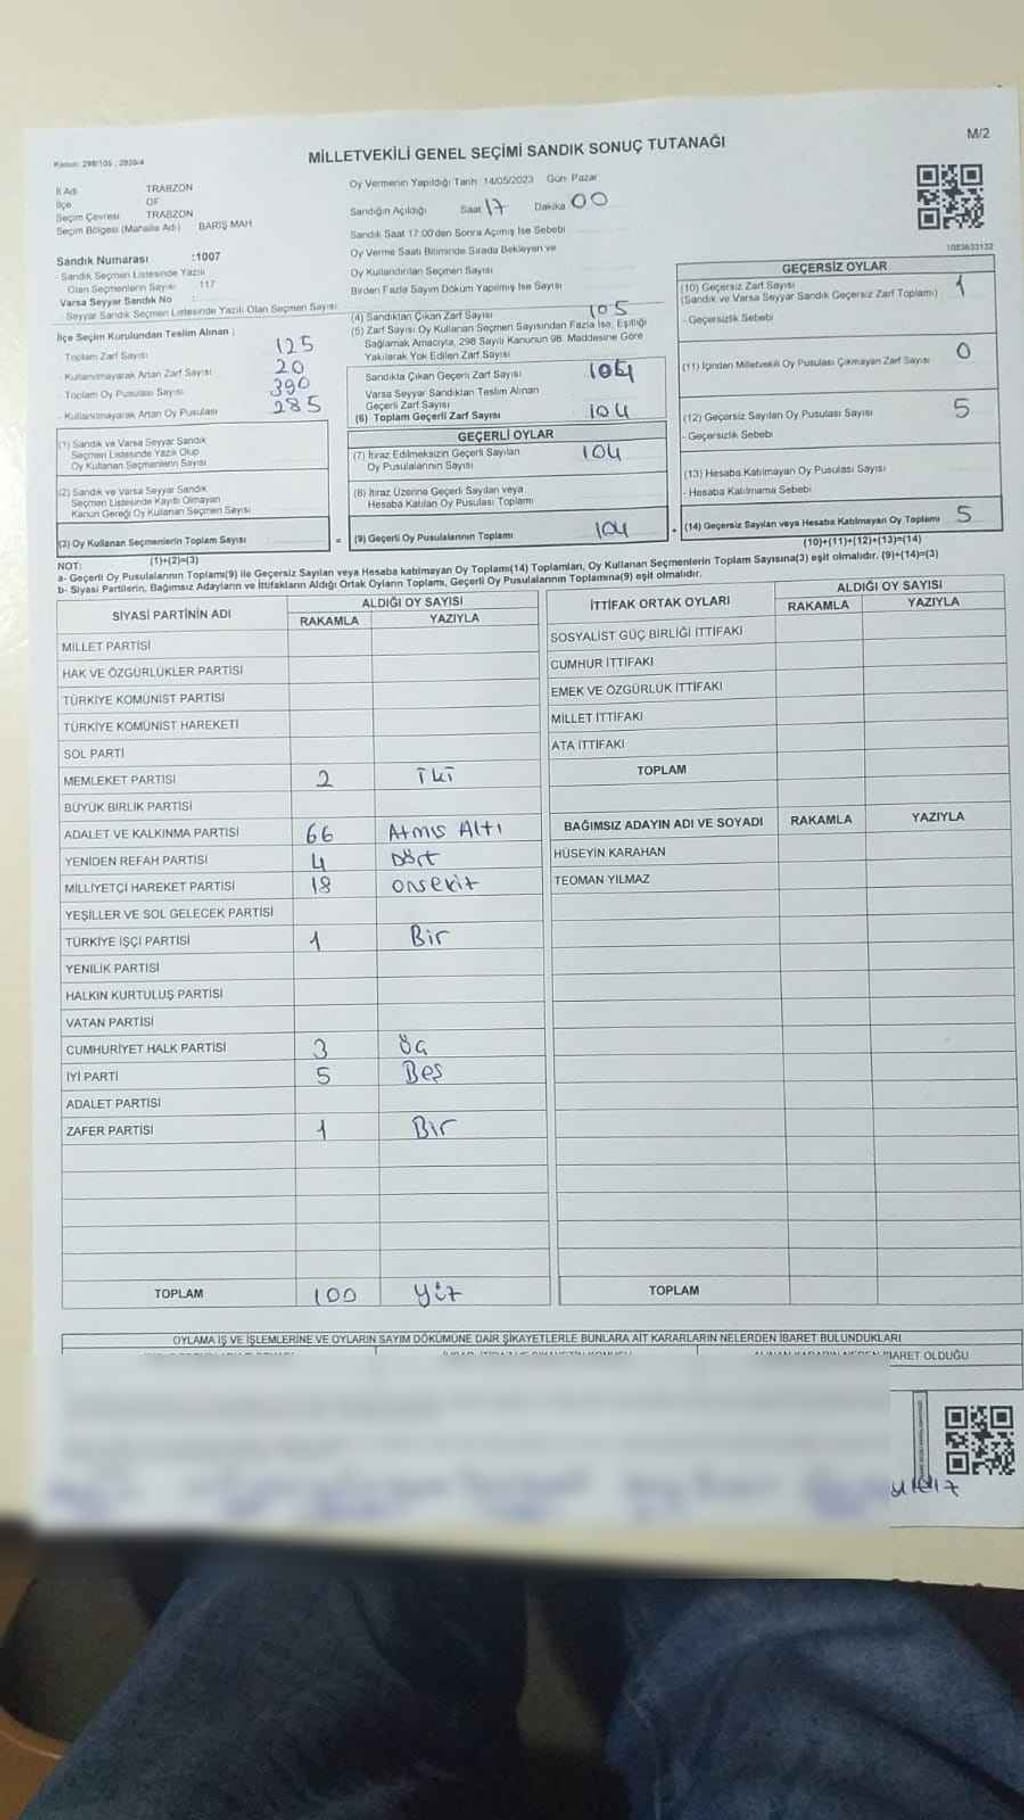 M/2
MİLLETVEKİLİ GENEL SEÇİMİ SANDIK SONUÇ TUTANAĞI
İl Adı TRABZON
İlçe OF
Seçim Çevresi TRABZON
Seçim Bölgesi (Mahalle Adı) BARIŞ MAH
Sandık Numarası :1007
- Sandık Seçmen Listesinde Yazılı
Olan Seçmenlerin Sayısı 117
Varsa Seyyar Sandık No :
- Seyyar Sandık Seçmen Listesinde Yazılı Olan Seçmen Sayısı
İlçe Seçim Kurulundan Teslim Alınan ;
- Toplam Zarf Sayısı 125
- Kullanılmayarak Artan Zarf Sayısı 20
- Toplam Oy Pusulası Sayısı 390
- Kullanılmayarak Artan Oy Pusulası 285
(1) Sandık ve Varsa Seyyar Sandık
Seçmen Listesinde Yazılı Olup
Oy Kullanan Seçmenlerin Sayısı
(2) Sandık ve Varsa Seyyar Sandık
Seçmen Listesinde Kayıtlı Olmayan
Kanun Gereği Oy Kullanan Seçmen Sayısı
(3) Oy Kullanan Seçmenlerin Toplam Sayısı
(1)+(2)=(3)
Oy Vermenin Yapıldığı Tarih: 14/05/2023 Gün: Pazar
Sandığın Açıldığı Saat 17 Dakika 00
Sandık Saat 17:00'den Sonra Açılmış İse Sebebi
Oy Verme Saati Bitiminde Sırada Bekleyen ve
Oy Kullandırılan Seçmen Sayısı
Birden Fazla Sayım Döküm Yapılmış İse Sayısı
(4) Sandıktan Çıkan Zarf Sayısı 105
(5) Zarf Sayısı Oy Kullanan Seçmen Sayısından Fazla İse, Eşitliği
Sağlamak Amacıyla, 298 Sayılı Kanunun 98. Maddesine Göre
Yakılarak Yok Edilen Zarf Sayısı
Sandıkta Çıkan Geçerli Zarf Sayısı 104
Varsa Seyyar Sandıktan Teslim Alınan
Geçerli Zarf Sayısı
(6) Toplam Geçerli Zarf Sayısı 104
GEÇERLİ OYLAR
(7) İtiraz Edilmeksizin Geçerli Sayılan
Oy Pusulalarının Sayısı 104
(8) İtiraz Üzerine Geçerli Sayılan veya
Hesaba Katılan Oy Pusulası Toplamı
= (9) Geçerli Oy Pusulalarının Toplamı 104 +
1083633132
GEÇERSİZ OYLAR
(10) Geçersiz Zarf Sayısı 1
(Sandık ve Varsa Seyyar Sandık Geçersiz Zarf Toplamı)
- Geçersizlik Sebebi
(11) İçinden Milletvekili Oy Pusulası Çıkmayan Zarf Sayısı 0
(12) Geçersiz Sayılan Oy Pusulası Sayısı 5
- Geçersizlik Sebebi
(13) Hesaba Katılmayan Oy Pusulası Sayısı
- Hesaba Katılmama Sebebi
(14) Geçersiz Sayılan veya Hesaba Katılmayan Oy Toplamı 5
(10)+(11)+(12)+(13)=(14)
NOT:
a- Geçerli Oy Pusulalarının Toplamı(9) ile Geçersiz Sayılan veya Hesaba katılmayan Oy Toplamı(14) Toplamları, Oy Kullanan Seçmenlerin Toplam Sayısına(3) eşit olmalıdır. (9)+(14)=(3)
b- Siyasi Partilerin, Bağımsız Adayların ve İttifakların Aldığı Ortak Oyların Toplamı, Geçerli Oy Pusulalarının Toplamına(9) eşit olmalıdır.
SİYASİ PARTİNİN ADI ALDIĞI OY SAYISI
RAKAMLA YAZIYLA
MİLLET PARTİSİ
HAK VE ÖZGÜRLÜKLER PARTİSİ
TÜRKİYE KOMÜNİST PARTİSİ
TÜRKİYE KOMÜNİST HAREKETİ
SOL PARTİ
MEMLEKET PARTİSİ 2 İki
BÜYÜK BİRLİK PARTİSİ
ADALET VE KALKINMA PARTİSİ 66 Atmıs Altı
YENİDEN REFAH PARTİSİ 4 Dört
MİLLİYETÇİ HAREKET PARTİSİ 18 onsekiz
YEŞİLLER VE SOL GELECEK PARTİSİ
TÜRKİYE İŞÇİ PARTİSİ 1 Bir
YENİLİK PARTİSİ
HALKIN KURTULUŞ PARTİSİ
VATAN PARTİSİ
CUMHURİYET HALK PARTİSİ 3 Üç
İYİ PARTİ 5 Beş
ADALET PARTİSİ
ZAFER PARTİSİ 1 Bir
TOPLAM 100 yüz
İTTİFAK ORTAK OYLARI ALDIĞI OY SAYISI
RAKAMLA YAZIYLA
SOSYALİST GÜÇ BİRLİĞİ İTTİFAKI
CUMHUR İTTİFAKI
EMEK VE ÖZGÜRLÜK İTTİFAKI
MİLLET İTTİFAKI
ATA İTTİFAKI
TOPLAM
BAĞIMSIZ ADAYIN ADI VE SOYADI RAKAMLA YAZIYLA
HÜSEYİN KARAHAN
TEOMAN YILMAZ
TOPLAM
OYLAMA İŞ VE İŞLEMLERİNE VE OYLARIN SAYIM DÖKÜMÜNE DAİR ŞİKAYETLERLE BUNLARA AİT KARARLARIN NELERDEN İBARET BULUNDUKLARI
OLDUĞU